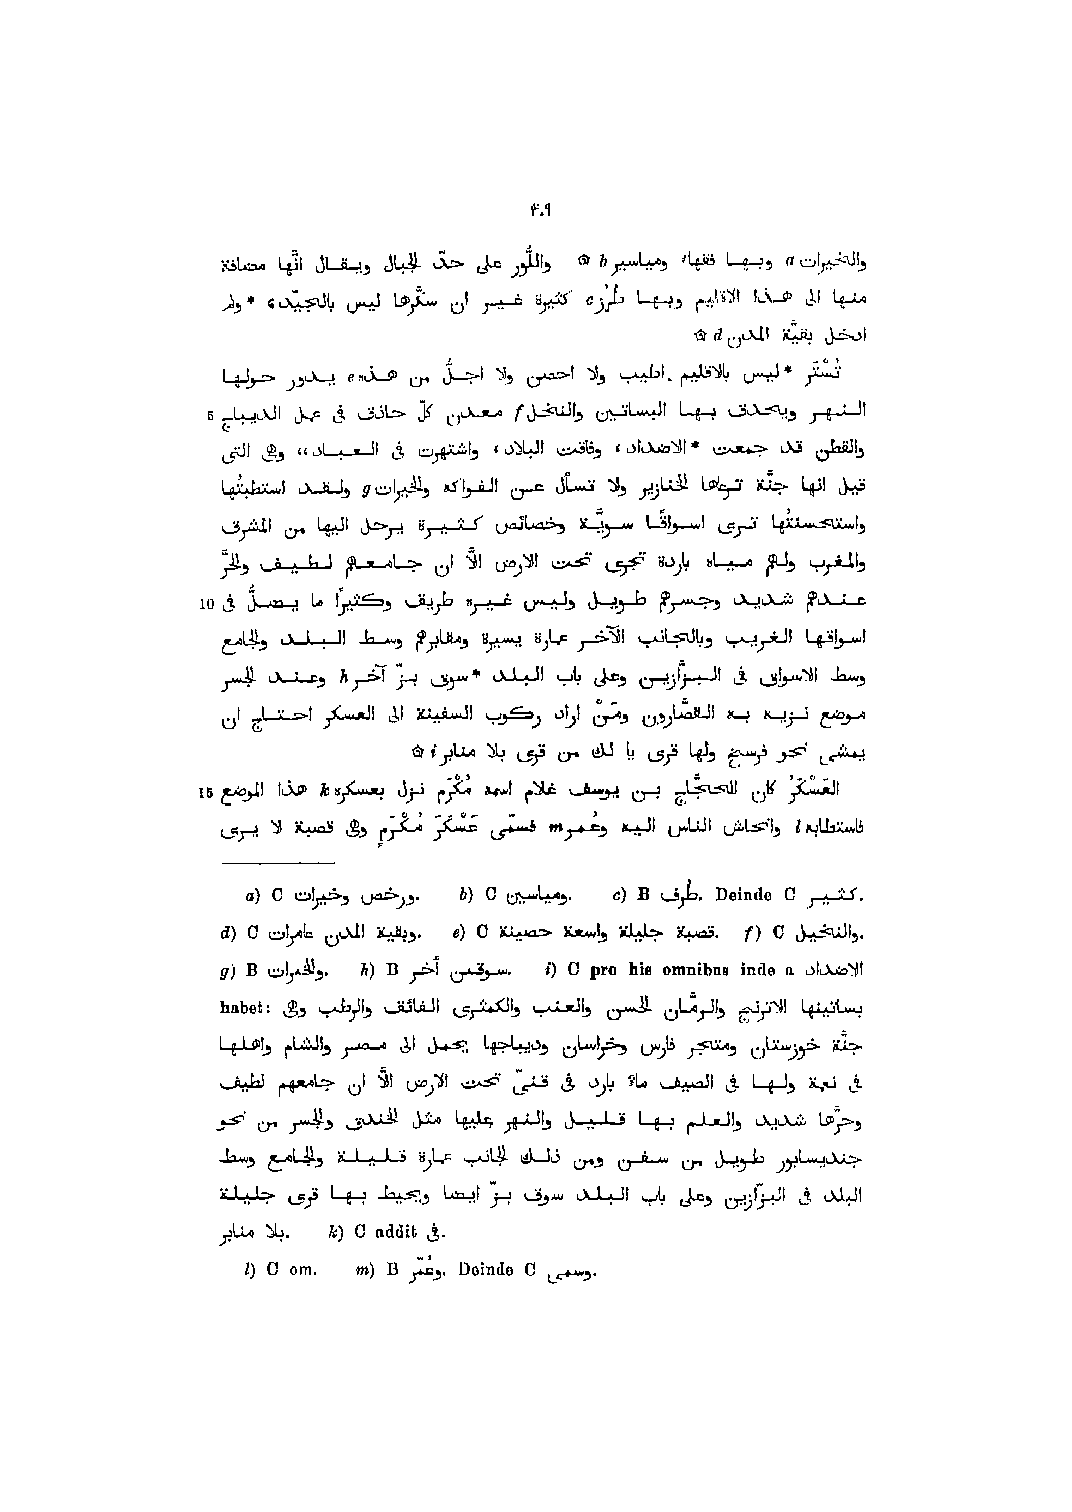 ٤٠٩
والخيرات a وبها فقهاء ومياسير b ۞ واللُّور على حدّ الجبال ويقال انّها مضافة
منها الى هذا الاقليم وبها طُرُز c كثيرة غير ان سكّرها ليس بالجيّد، *ولم
ادخل بقيّة المدن d ۞
تُسْتَر *ليس بالاقليم اطيب ولا احصن ولا اجلّ من هذه e يدور حولها
5 النهر ويحدف بها البساتين والنخل f معدن كلّ حاذق فى عمل الديباج
والقطن قد جمعت *الاضداد، وفاقت البلاد، واشتهرت فى العباد،، وهى التى
قيل انها جنّة ترعاها الخنازير ولا تسأل عن الفواكه والخيرات g ولقد استطبتُها
واستحسنتُها ترى اسواقًا سويّة وخصائص كثيرة يرحل اليها من المشرق
والمغرب ولهم مياه باردة تجرى تحت الارض الّا ان جامعهم لطيف والحَرّ
10 عندهم شديد وجسرهم طويل وليس غيره طريق وكثيرًا ما يضلّ فى
اسواقها الغريب وبالجانب الآخر عمارة يسيرة ومقابرهم وسط البلد والجامع
وسط الاسواق فى البزّازين وعلى باب البلد *سوق بزّ آخر h وعند الجسر
موضع نزيه به القصّارون ومَنْ اراد ركوب السفينة الى العسكر احتاج ان
يمشى نحو فرسخ ولها قرى يا لك من قرى بلا منابر i ۞
15 العَسْكَرُ كان للحجّاج بن يوسف غلام اسمه مُكْرَم نزل بعسكره k هذا الموضع
فاستطابه l وانحاش الناس اليه وعُمر m فسمّى عَسْكَرَ مُكْرَمٍ وهى قصبة لا يرى
a) C ورخص وخيرات. b) C ومياسين. c) B طرف. Deinde C كثير.
d) C وبقية المدن عامرات. e) C قصبة جليلة واسعة حصينة. f) C والنخيل.
g) B والخمرات. h) B سوقين أخر. i) C pro his omnibus inde a الاضداد
habet: بساتينها الاترنج والرمّان الحسن والعنب والكمثرى الفائق والرطب وهى
جنّة خوزستان ومتجر فارس وخراسان وديباجها يحمل الى مصر والشام واهلها
فى نعمة ولها فى الصيف ماء بارد فى قنىّ تحت الارض الّا ان جامعهم لطيف
وحرّها شديد والعلم بها قليل والنهر عليها مثل الخندق والجسر من نحو
جنديسابور طويل من سفن ومن ذلك الجانب عمارة قليلة والجامع وسط
البلد فى البزّازين وعلى باب البلد سوق بزّ ايضا ويحيط بها قرى جليلة
بلا منابر. k) C addit فى.
l) C om. m) B وعُمّر. Deinde C وسمى.